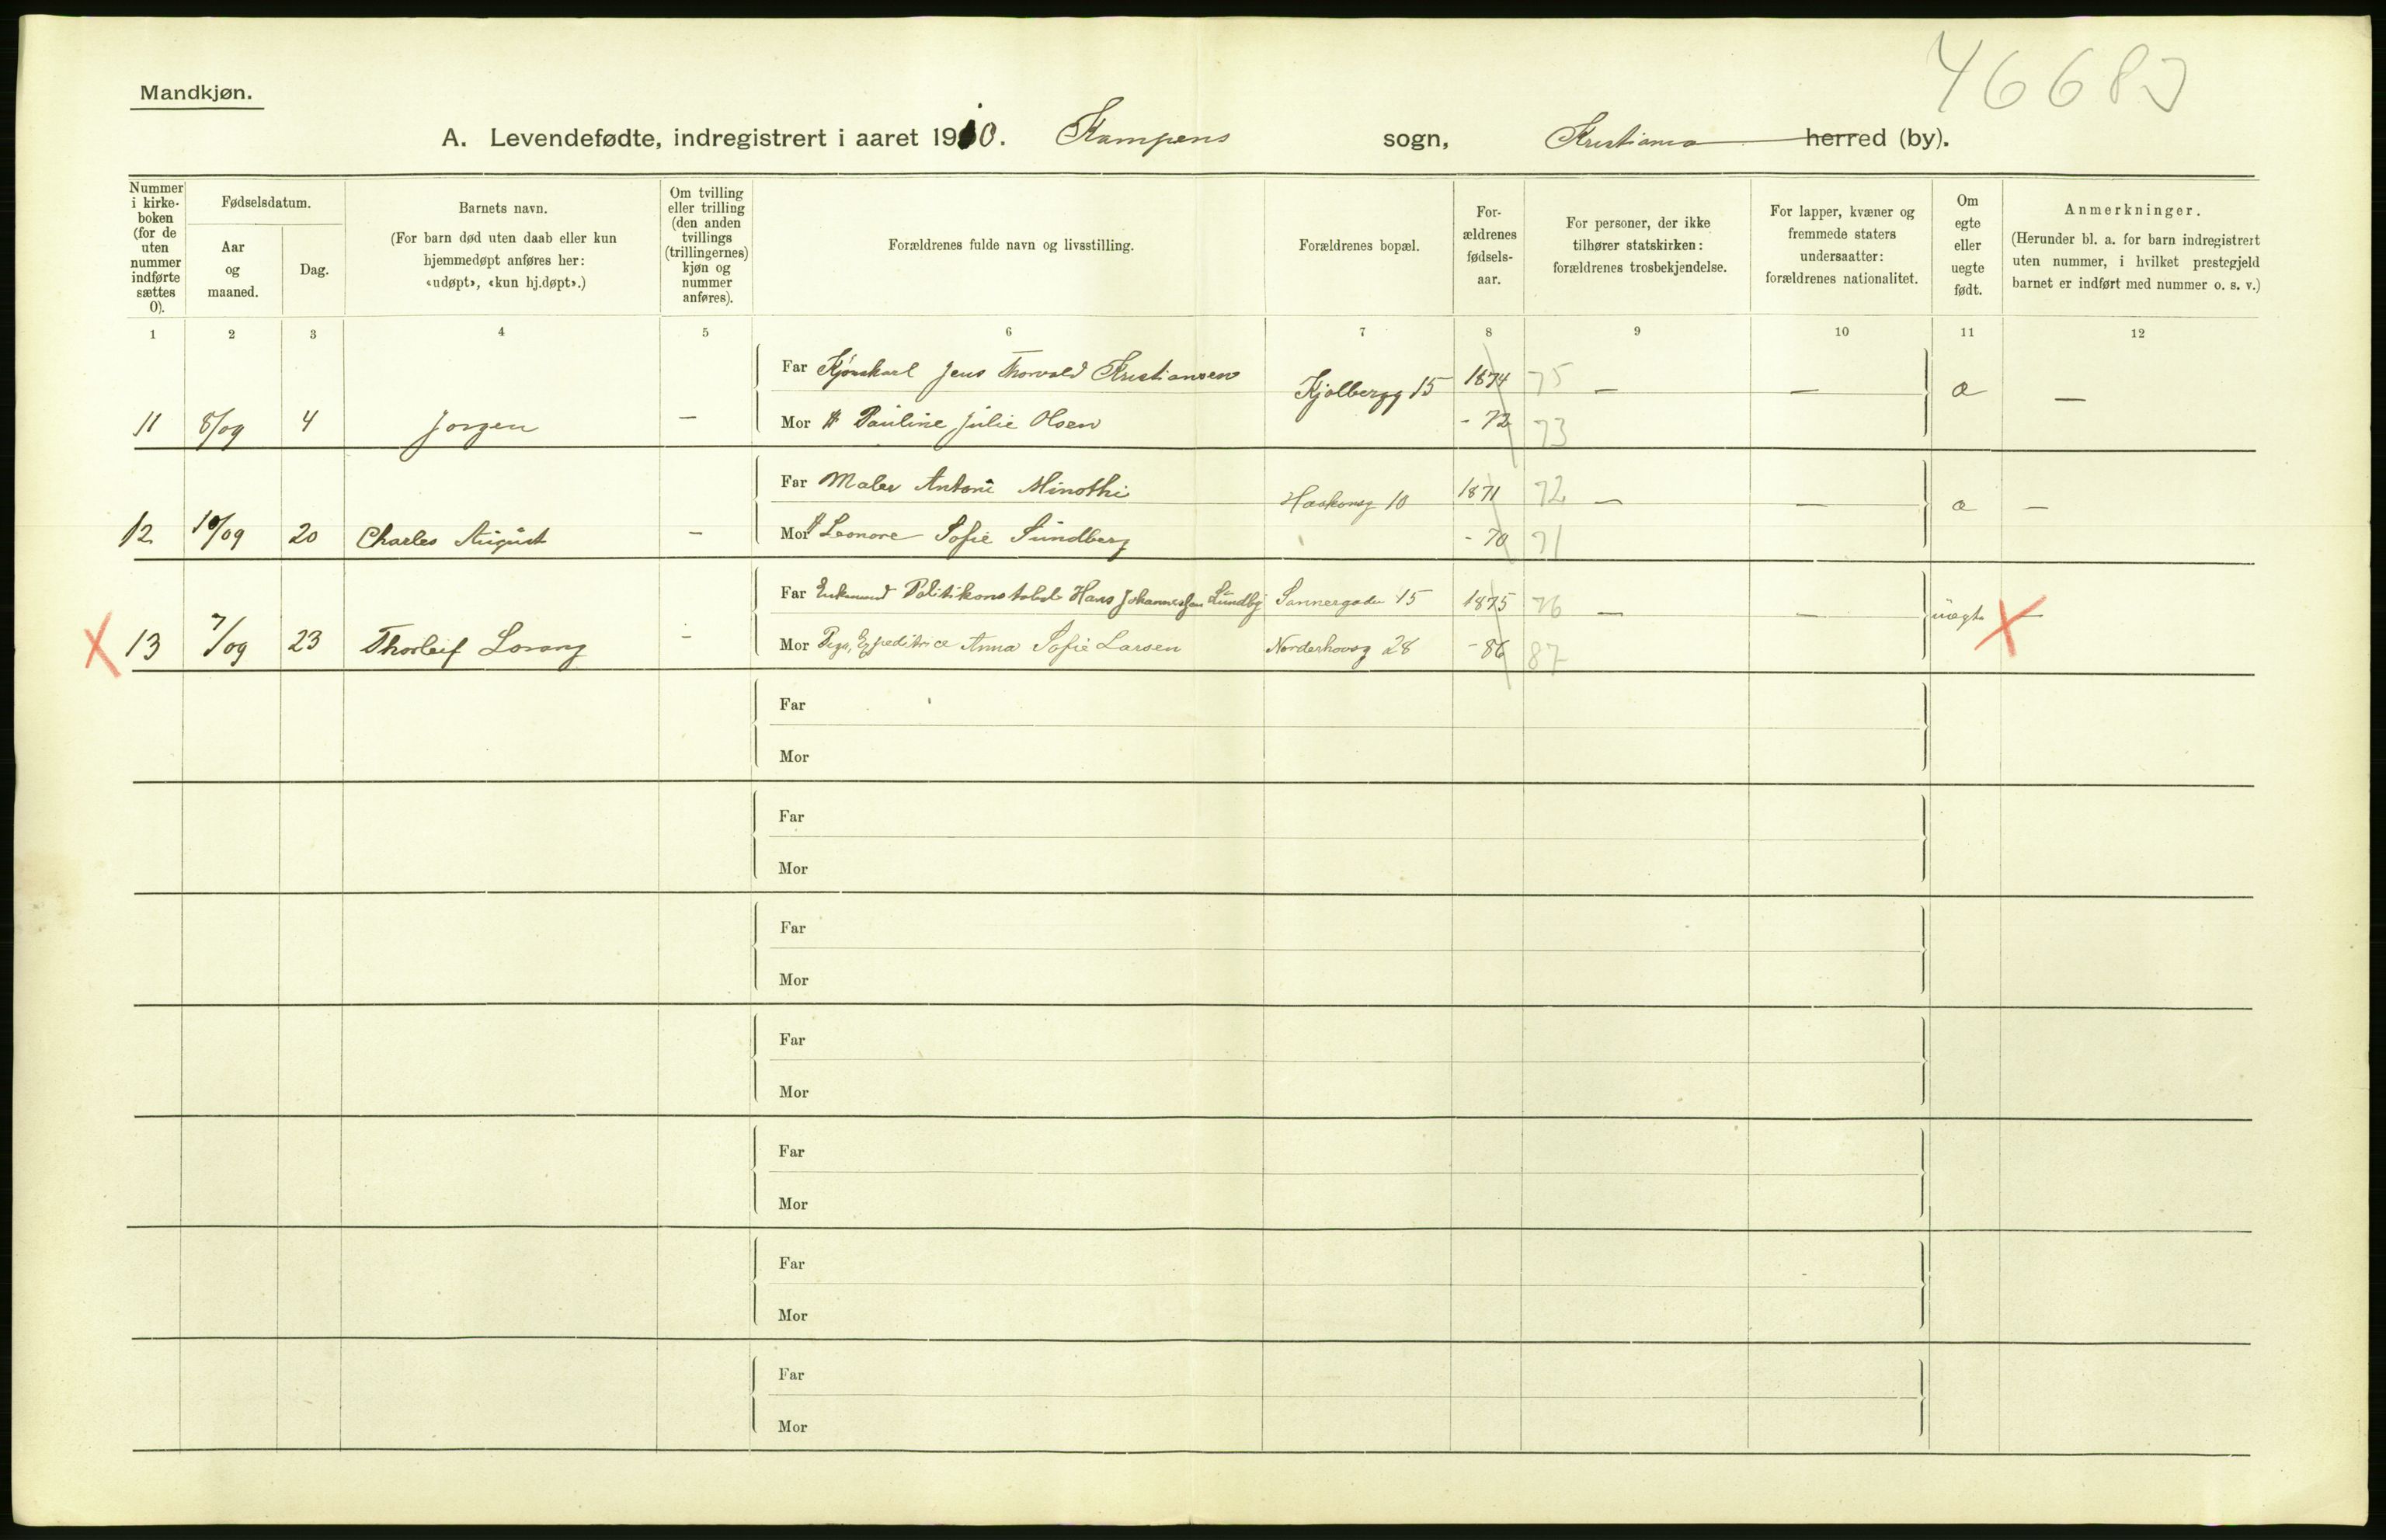 4668
Mandkjøn.
A. Levendefødte, indregistrert i aaret 1910. Kampens sogn, Kristiania herred (by).
Nummer i kirke-boken (for de uten nummer indførte sættes 0).
Fødselsdatum.
Aar og maaned.
Dag.
Barnets navn.
(For barn død uten daab eller kun hjemmedøpt anføres her: «udøpt», «kun hj.døpt».)
Om tvilling eller trilling (den anden tvillings (trillingernes) kjøn og nummer anføres).
Forældrenes fulde navn og livsstilling.
Forældrenes bopæl.
For-ældrenes fødsels-aar.
For personer, der ikke tilhører statskirken: forældrenes trosbekjendelse.
For lapper, kvæner og fremmede staters undersaatter: forældrenes nationalitet.
Om egte eller uegte født.
Anmerkninger.
(Herunder bl. a. for barn indregistrert uten nummer, i hvilket prestegjeld barnet er indført med nummer o. s. v.)
1 2 3 4 5 6 7 8 9 10 11 12
Far Kjørekarl Jens Thorvald Kristiansen Kjølbergg 15 1874 75 — — —
11 8/09 4 Jørgen — Mor Pauline Julie Olsen - 72 73
Far Maler Antoni Minothi Haakonsg 10 1871 72 — — —
12 10/09 20 Charles August — Mor Leonore Sofie Sundberg - 70 71
Far Enkemand Politikonstabel Hans Johannessen Lundby Sannergaden 15 1875 76 — — uegte X —
X 13 7/09 23 Thorleif Lorang - Mor Pige, Expeditrice Anna Sofie Larsen Norderhovsg 28 - 86 87
Far
Mor
Far
Mor
Far
Mor
Far
Mor
Far
Mor
Far
Mor
Far
Mor